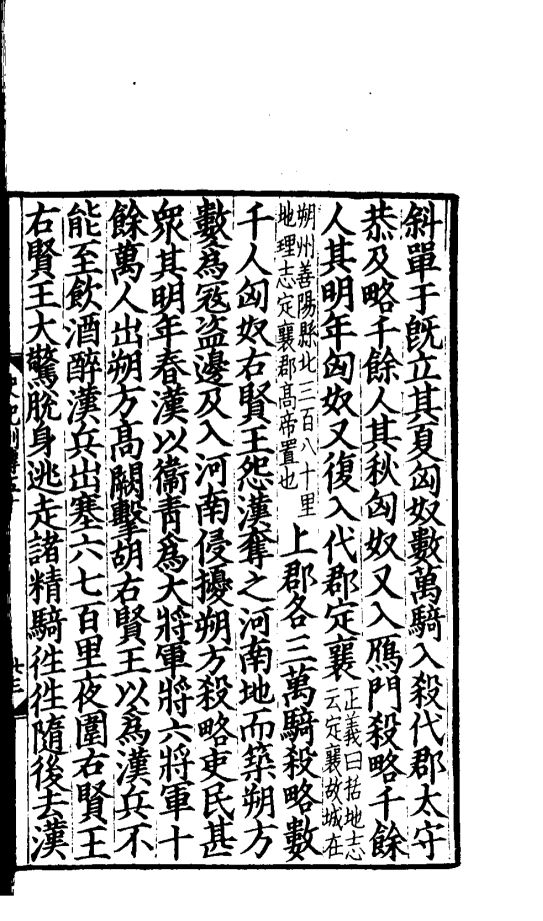 斜單于旣立其夏匈奴數萬騎入殺代郡太守
恭及略千餘人其秋匈奴又入鴈門殺略千餘
人其明年匈奴又復入代郡定襄正義曰括地志云定襄故城在
朔州善陽縣北三百八十里地理志定襄郡高帝置也上郡各三萬騎殺略數
千人匈奴右賢王怨漢奪之河南地而築朔方
數爲宼盗邊及入河南侵擾朔方殺略吏民甚
衆其明年春漢以衞青爲大將軍將六將軍十
餘萬人出朔方高闕擊胡右賢王以爲漢兵不
能至飲酒醉漢兵出塞六七百里夜圍右賢王
右賢王大驚脫身逃走諸精騎徃徃隨後去漢